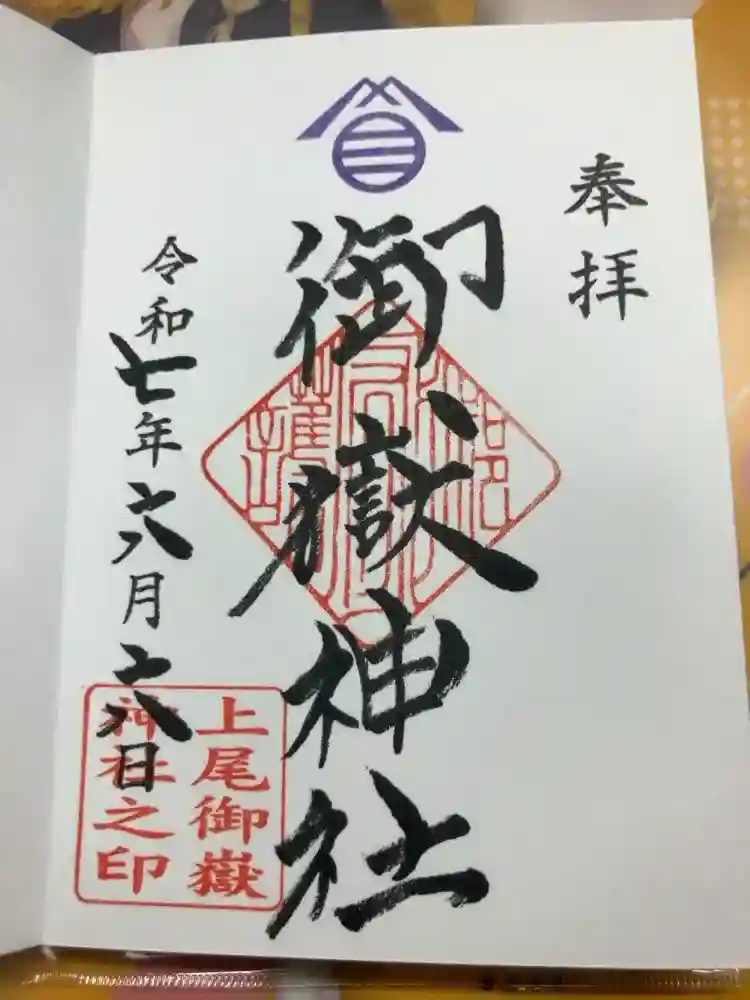 奉拝
御嶽神社
令和七年六月六日
上尾御嶽
神社之印